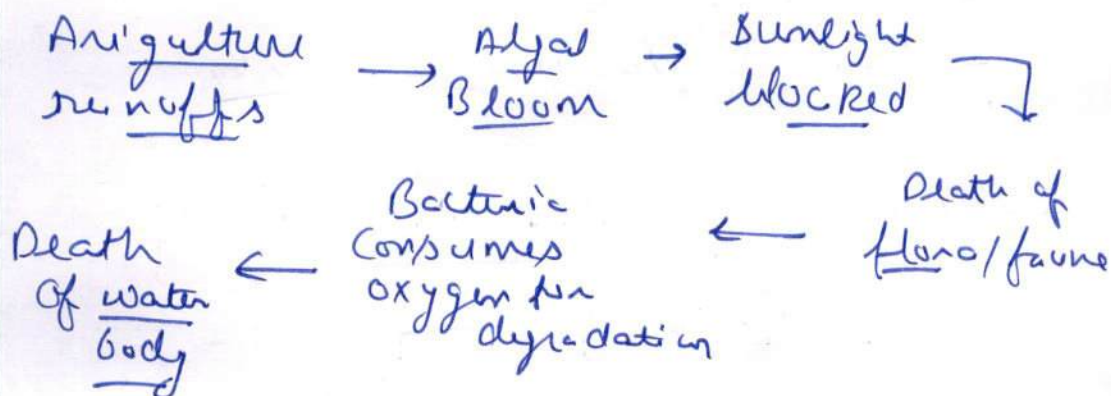 Arigulture
runoffs
→ Algal
Bloom
→ Sunlight
blocked
Death of
flora/fauna
← Bacteria
Consumes
oxygen for
degradation
← Death
of water
body